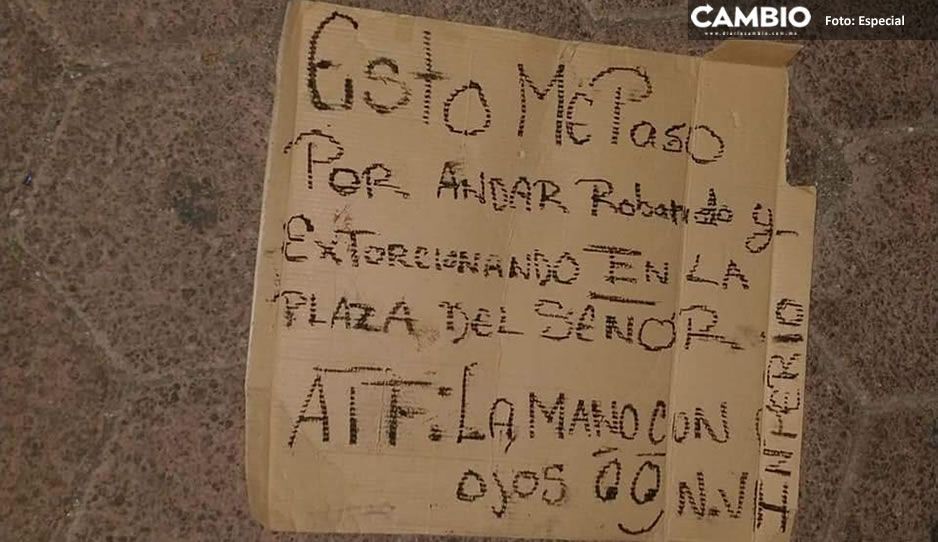 CAMBIO
www.diariocambio.com.mx
Foto: Especial
Esto Me Paso
Por ANDAR Robando y
ExTORCIONANDO EN LA
PLAZA DEL SEÑOR.
ATTE: LA MANO CON
ojos N.V
IMPERIO